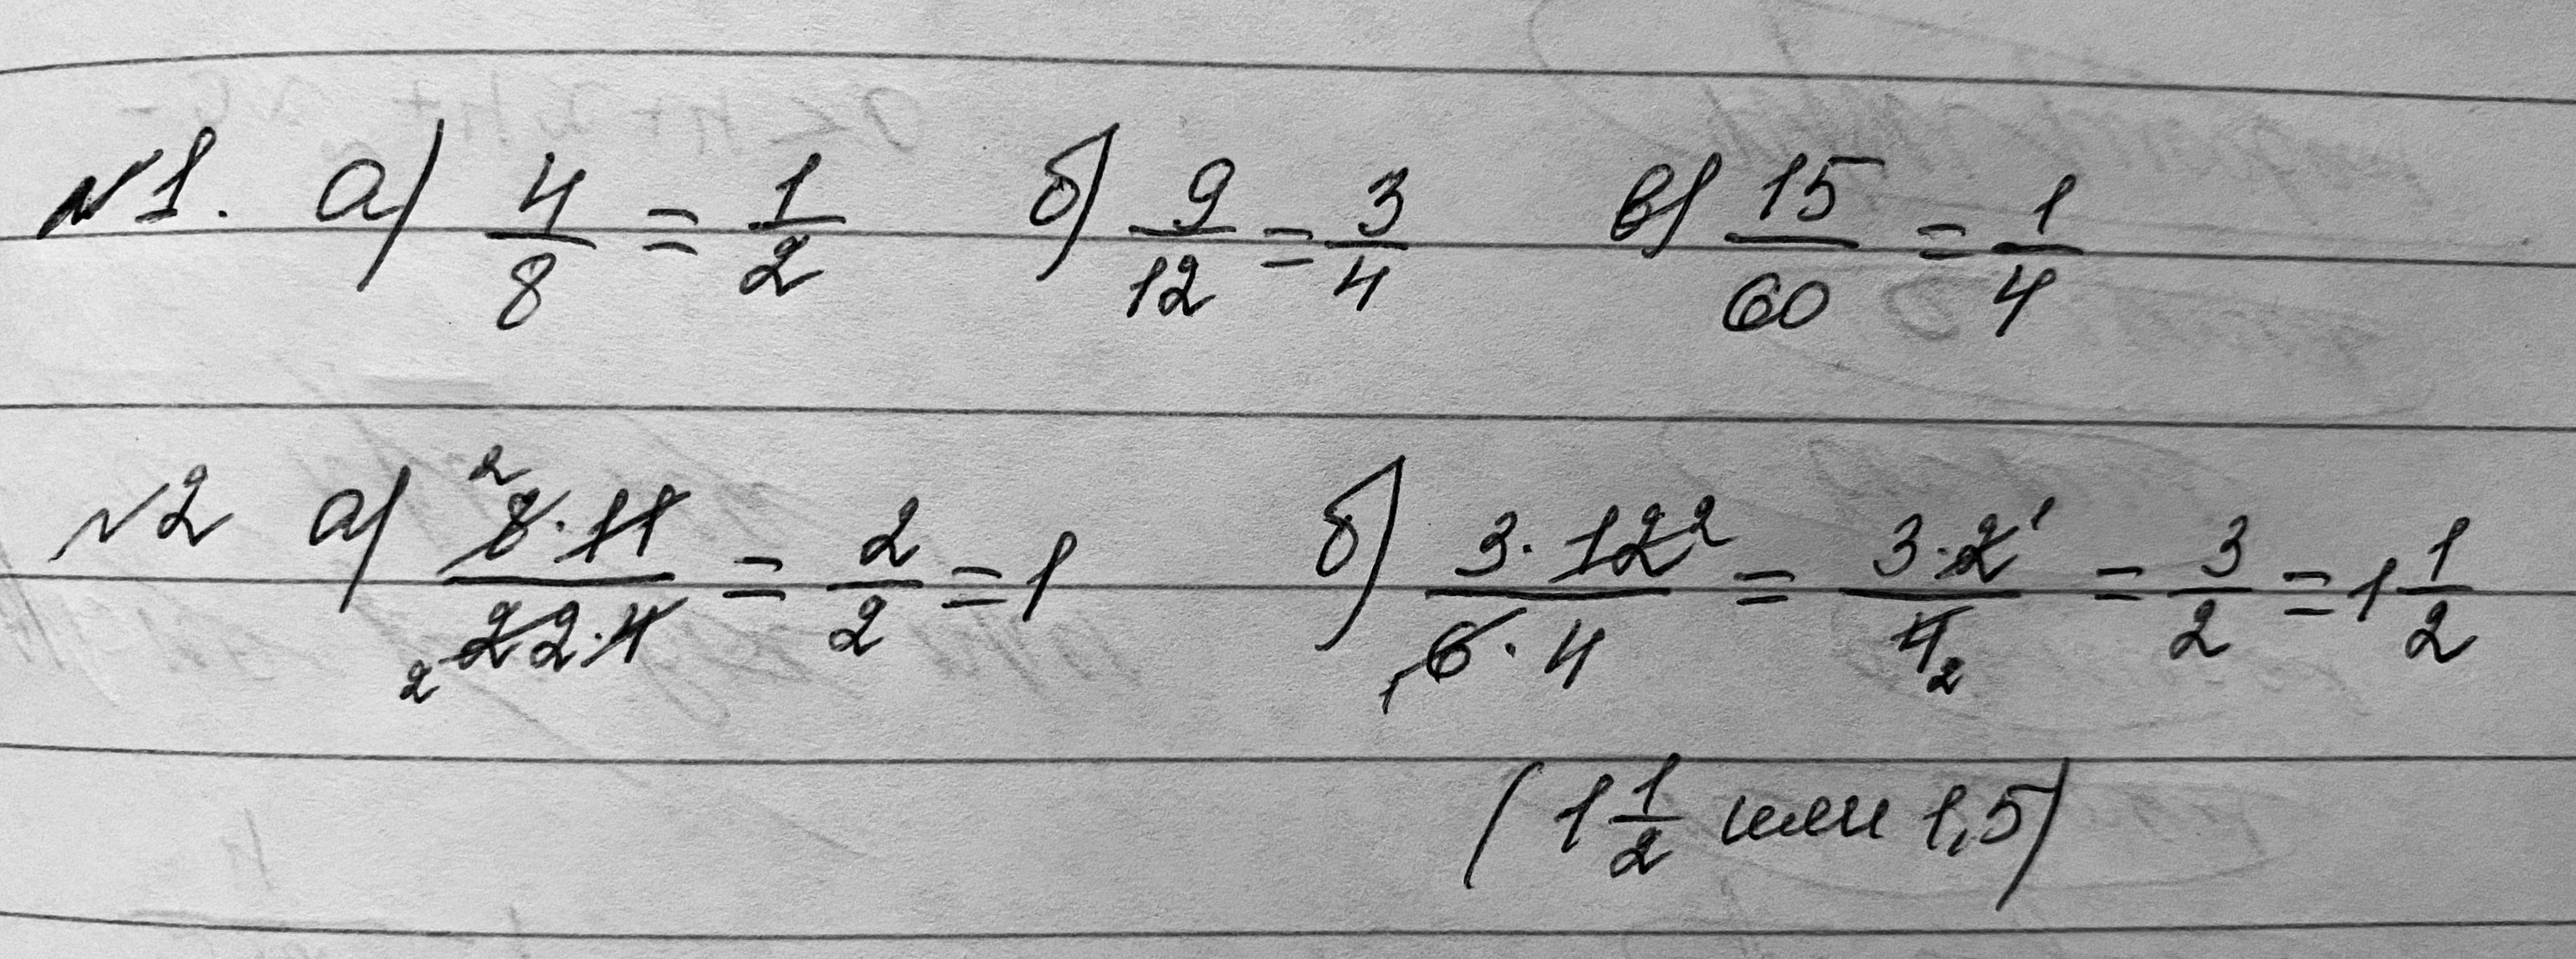 №1. а) 4/8 = 1/2 б) 9/12 = 3/4 в) 15/60 = 1/4
№2 а) 8·11/22·4 = 2/2 = 1 б) 3·12/6·4 = 3·2/4 = 3/2 = 1 1/2
(1 1/2 или 1,5)